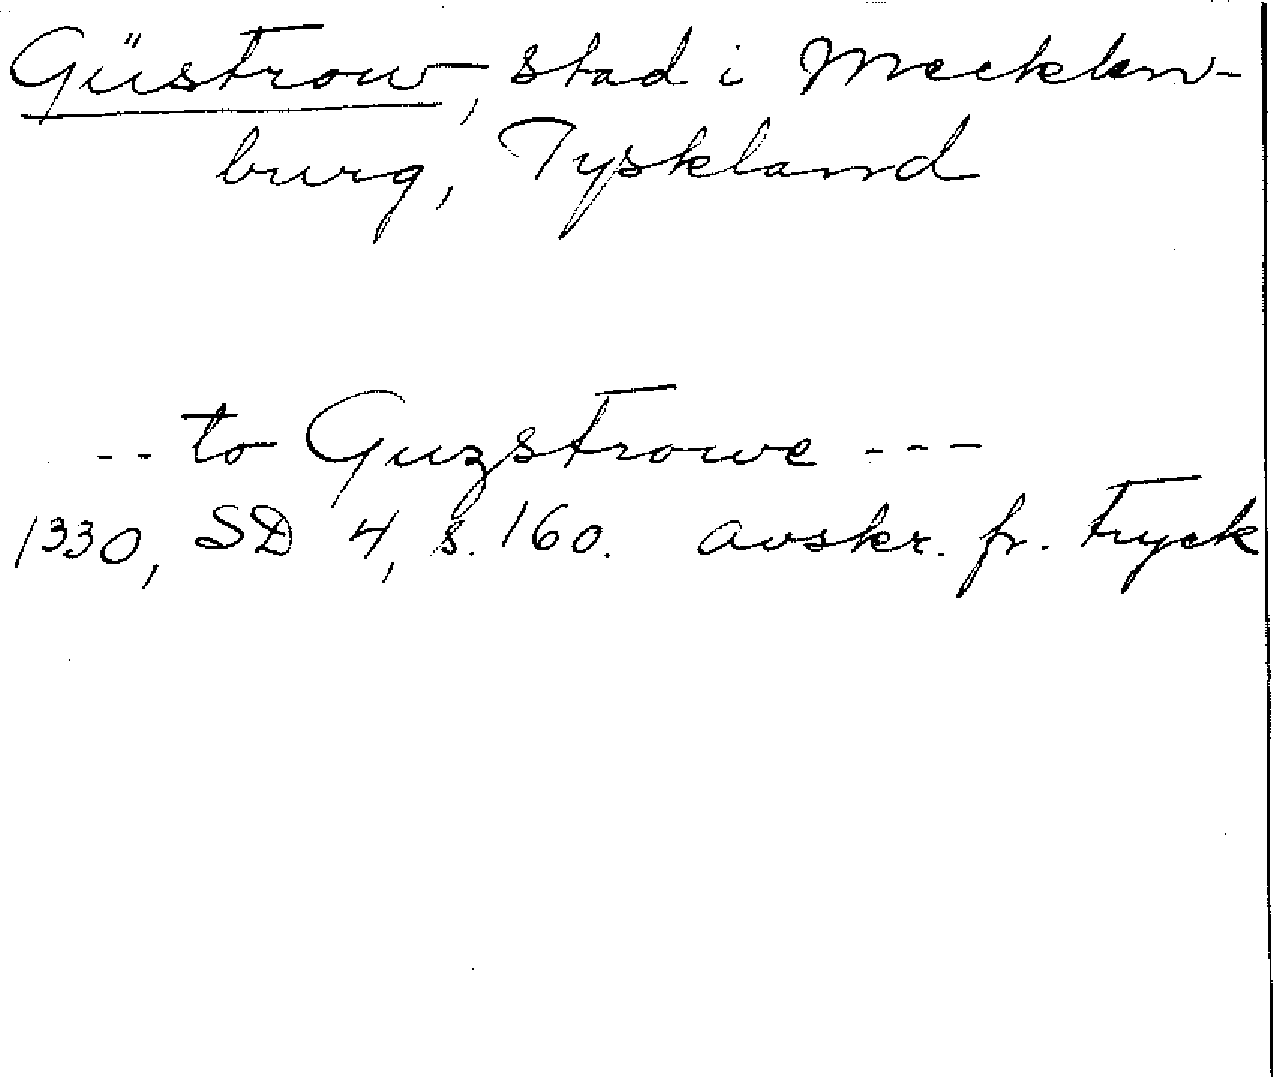 Güstrow, stad i Mecklen-
burg, Tyskland
-- to Guzstrowe ---
1330, SD 4, s. 160. avskr. fr. tryck